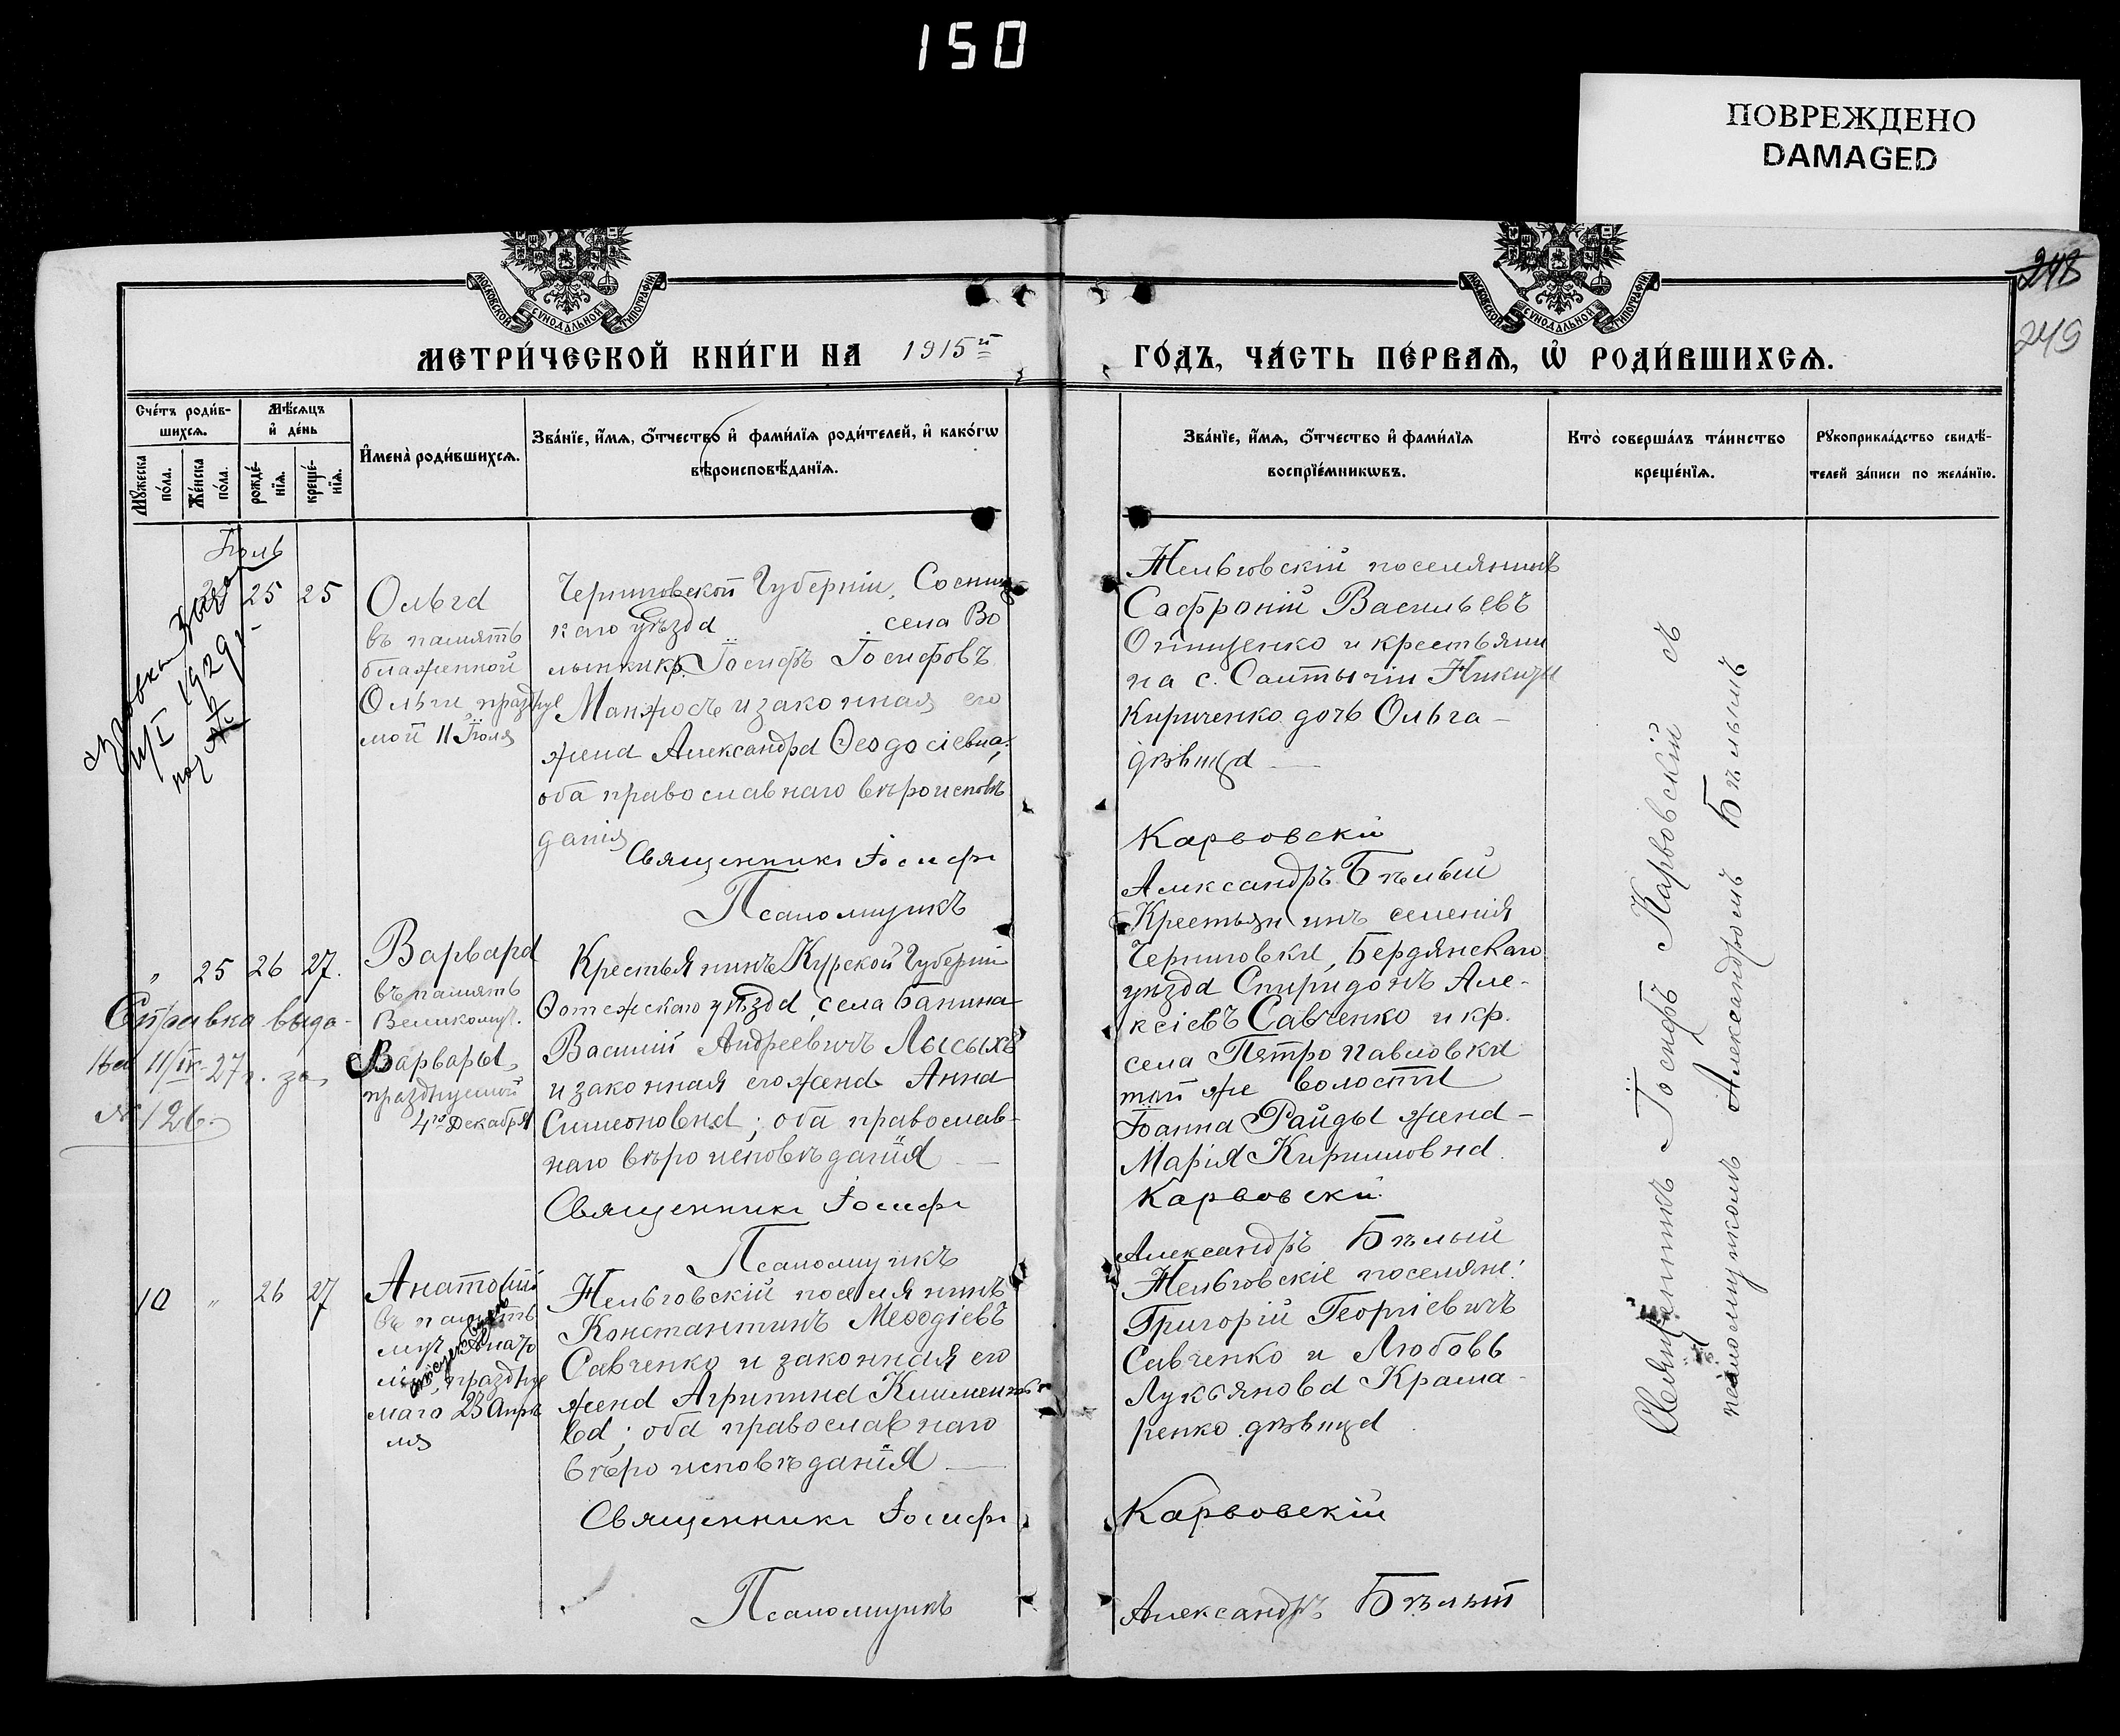 150
ПОВРЕЖДЕНО
DAMAGED
248
249
МОСКОВСКОЙ СѴНОДАЛЬНОЙ ТИПОГРАФІИ
МОСКОВСКОЙ СѴНОДАЛЬНОЙ ТИПОГРАФІИ
МЕТРИ́ЧЕСКОЙ КНИ́ГИ НА 1915й
ГО́ДЪ, ЧА́СТЬ ПЕ́РВАѦ, Ѡ РОДИ́ВШИХСѦ.
Сче́тъ роди́в-
шихсѧ.
Мѣ́сѧцъ
и де́нь
Мꙋжеска
по́ла.
Же́нска
по́ла.
рожде́-
нїѧ.
креще́-
нїѧ.
И҆мена̀ роди́вшихсѧ.
Зва́нїе, и҆́мѧ, ѻ҆́тчество и҆ фами́лїѧ роди́телей, и҆ како́гѡ
вѣроисповѣ́данїѧ.
Зва́нїе, и҆́мѧ, ѻ҆́тчество и҆ фами́лїѧ
воспрїе́мникѡвъ.
Кто̀ соверша́лъ та́инство
креще́нїѧ.
Рꙋкоприкла́дство свидѣ́-
телей за́писи по жела́нїю.
Іюль
25 25
Ольга
въ память
блаженной
Ольги, празднуе
мой 11 Іюля
Черниговской Губерніи, Сосниц
каго уѣзда села Во
лынки кр. Іосифъ Іосифовъ
Манжосъ и законная его
жена Александра Ѳеодосіевна;
оба православнаго вѣроисповѣ
данія
Священникъ Іосифъ
Псаломщикъ
1929 г.
Нельговскій поселянинъ
Сафроній Васильевъ
Онищенко и крестьяни
на с. Салтычіи Никиты
Кириченко дочь Ольга –
дѣвица —
Карвовскій
Александръ Бѣлый
„ 25 26 27.
Справка выда-
на 11/IV-27 г. за
№ 126.
Варвара
въ память
Великомуч.
Варвары,
празднуемой
4го Декабря
Крестьянинъ Курской Губерніи
Фотежскаго уѣзда, села Банина
Василій Андреевичъ Лысыхъ
и законная его жена Анна
Симеоновна; оба православ-
наго вѣроисповѣданія —
Священникъ Іосифъ
Псаломщикъ
Крестьянинъ селенія
Черниговки, Бердянскаго
уѣзда Спиридонъ Але-
ксіевъ Савченко и кр.
села Петропавловки
той же волости
Іоанна Райды жена –
Марія Кирилловна.
Карвовскій
Александръ Бѣлый
10 „ 26 27
Анатолій
въ память
муч. Анато
лія, празднуе
маго 23 Апрѣ
ля
Нельговскій поселянинъ
Константинъ Меѳодіевъ
Савченко и законная его
жена Агрипина Климентье
ва; оба православнаго
вѣроисповѣданія —
Священникъ Іосифъ
Псаломщикъ
Нельговскіе поселяне:
Григорій Георгіевичъ
Савченко и Любовь
Лукьянова Крама-
ренко дѣвица
Карвовскій
Александръ Бѣлый
Священникъ Іосифъ Карвовскій съ
псаломщикомъ Александромъ Бѣлымъ